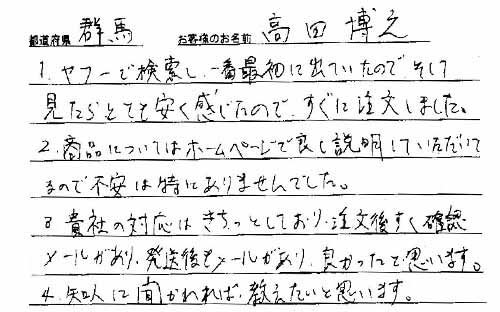 都道府県 群馬 お客様のお名前 高田 博之
1. ヤフーで検索し、一番最初に出ていたので、そして
見たらとても安く感じたので、すぐに注文しました。
2. 商品についてはホームページで良く説明していただいて
るので不安は特にありませんでした。
3 貴社の対応はきちっとしており、注文後すぐ確認
メールがあり、発送後もメールがあり、良かったと思います。
4. 知人に聞かれれば、教えたいと思います。